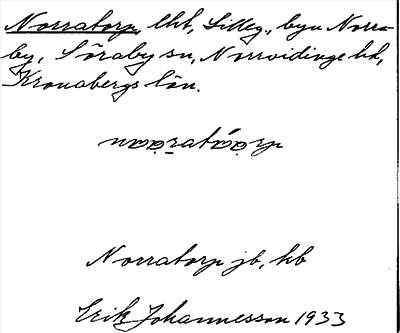 Norratorp, lht, Lilleg., byn Norra-
by, Söraby sn, Norrvidinge hd,
Kronobergs län.
Norratorp jb, kb
Erik Johannesson 1933